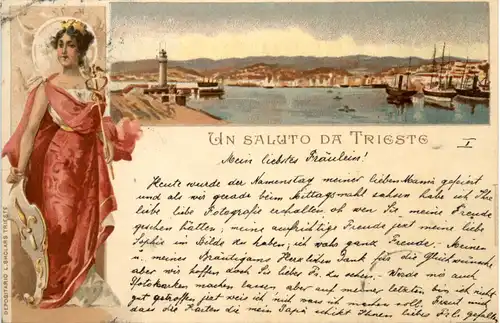 UN SALUTO DA TRIESTE
I
Mein liebstes Fräulein!
Heute wurde der Namenstag meiner lieben Mami gefeiert
und als wir gerade beim Mittagsmahl sahsen habe ich Ihr
liebe liebe Fotografie erhalten, oh wen Sie meine Freude
gesehen hätten; meine aufrichtige Freude jezt meine liebe
Sophie im Bilde zu haben; ich wahr ganz Freude. Meinen
u. meiner Bräutigams Herzlichen Dank für die Glückwünsche,
aber wir hoffen doch Sie liebes Frl. zu sehen. Werde mich auch
Fotokarten machen lassen, aber auf meiner letzten bin ich nicht
gut getroffen jezt weis ich nich was ich machen soll. Freut mich
dass die Karten die mein Papa schikt Ihnen liebes Frl. gefallen
DEPOSITARIO L. SMOLARS TRIESTE